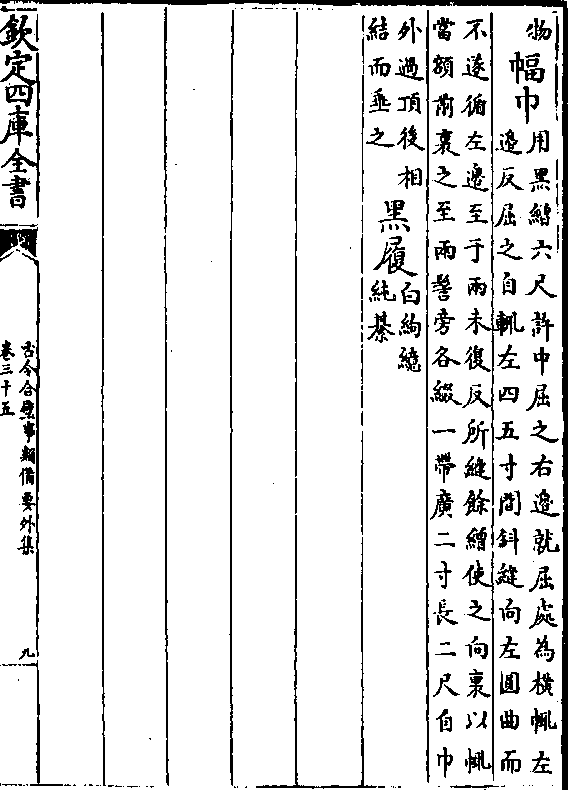 物
幅巾
用黑繒六尺許中屈之右邊就屈處為橫㡇左
邊反屈之自輒左四五寸間斜縫向左圓曲而
不遂循左邊至于兩末復反所縫餘繒使之向裏以㡇
當額前裹之至兩髻旁各綴一帶廣二寸長二尺自巾
外過頂後相
結而垂之
黑履
白絇繶
純綦
欽定四庫全書
古今合璧事類備要外集
卷三十五
九